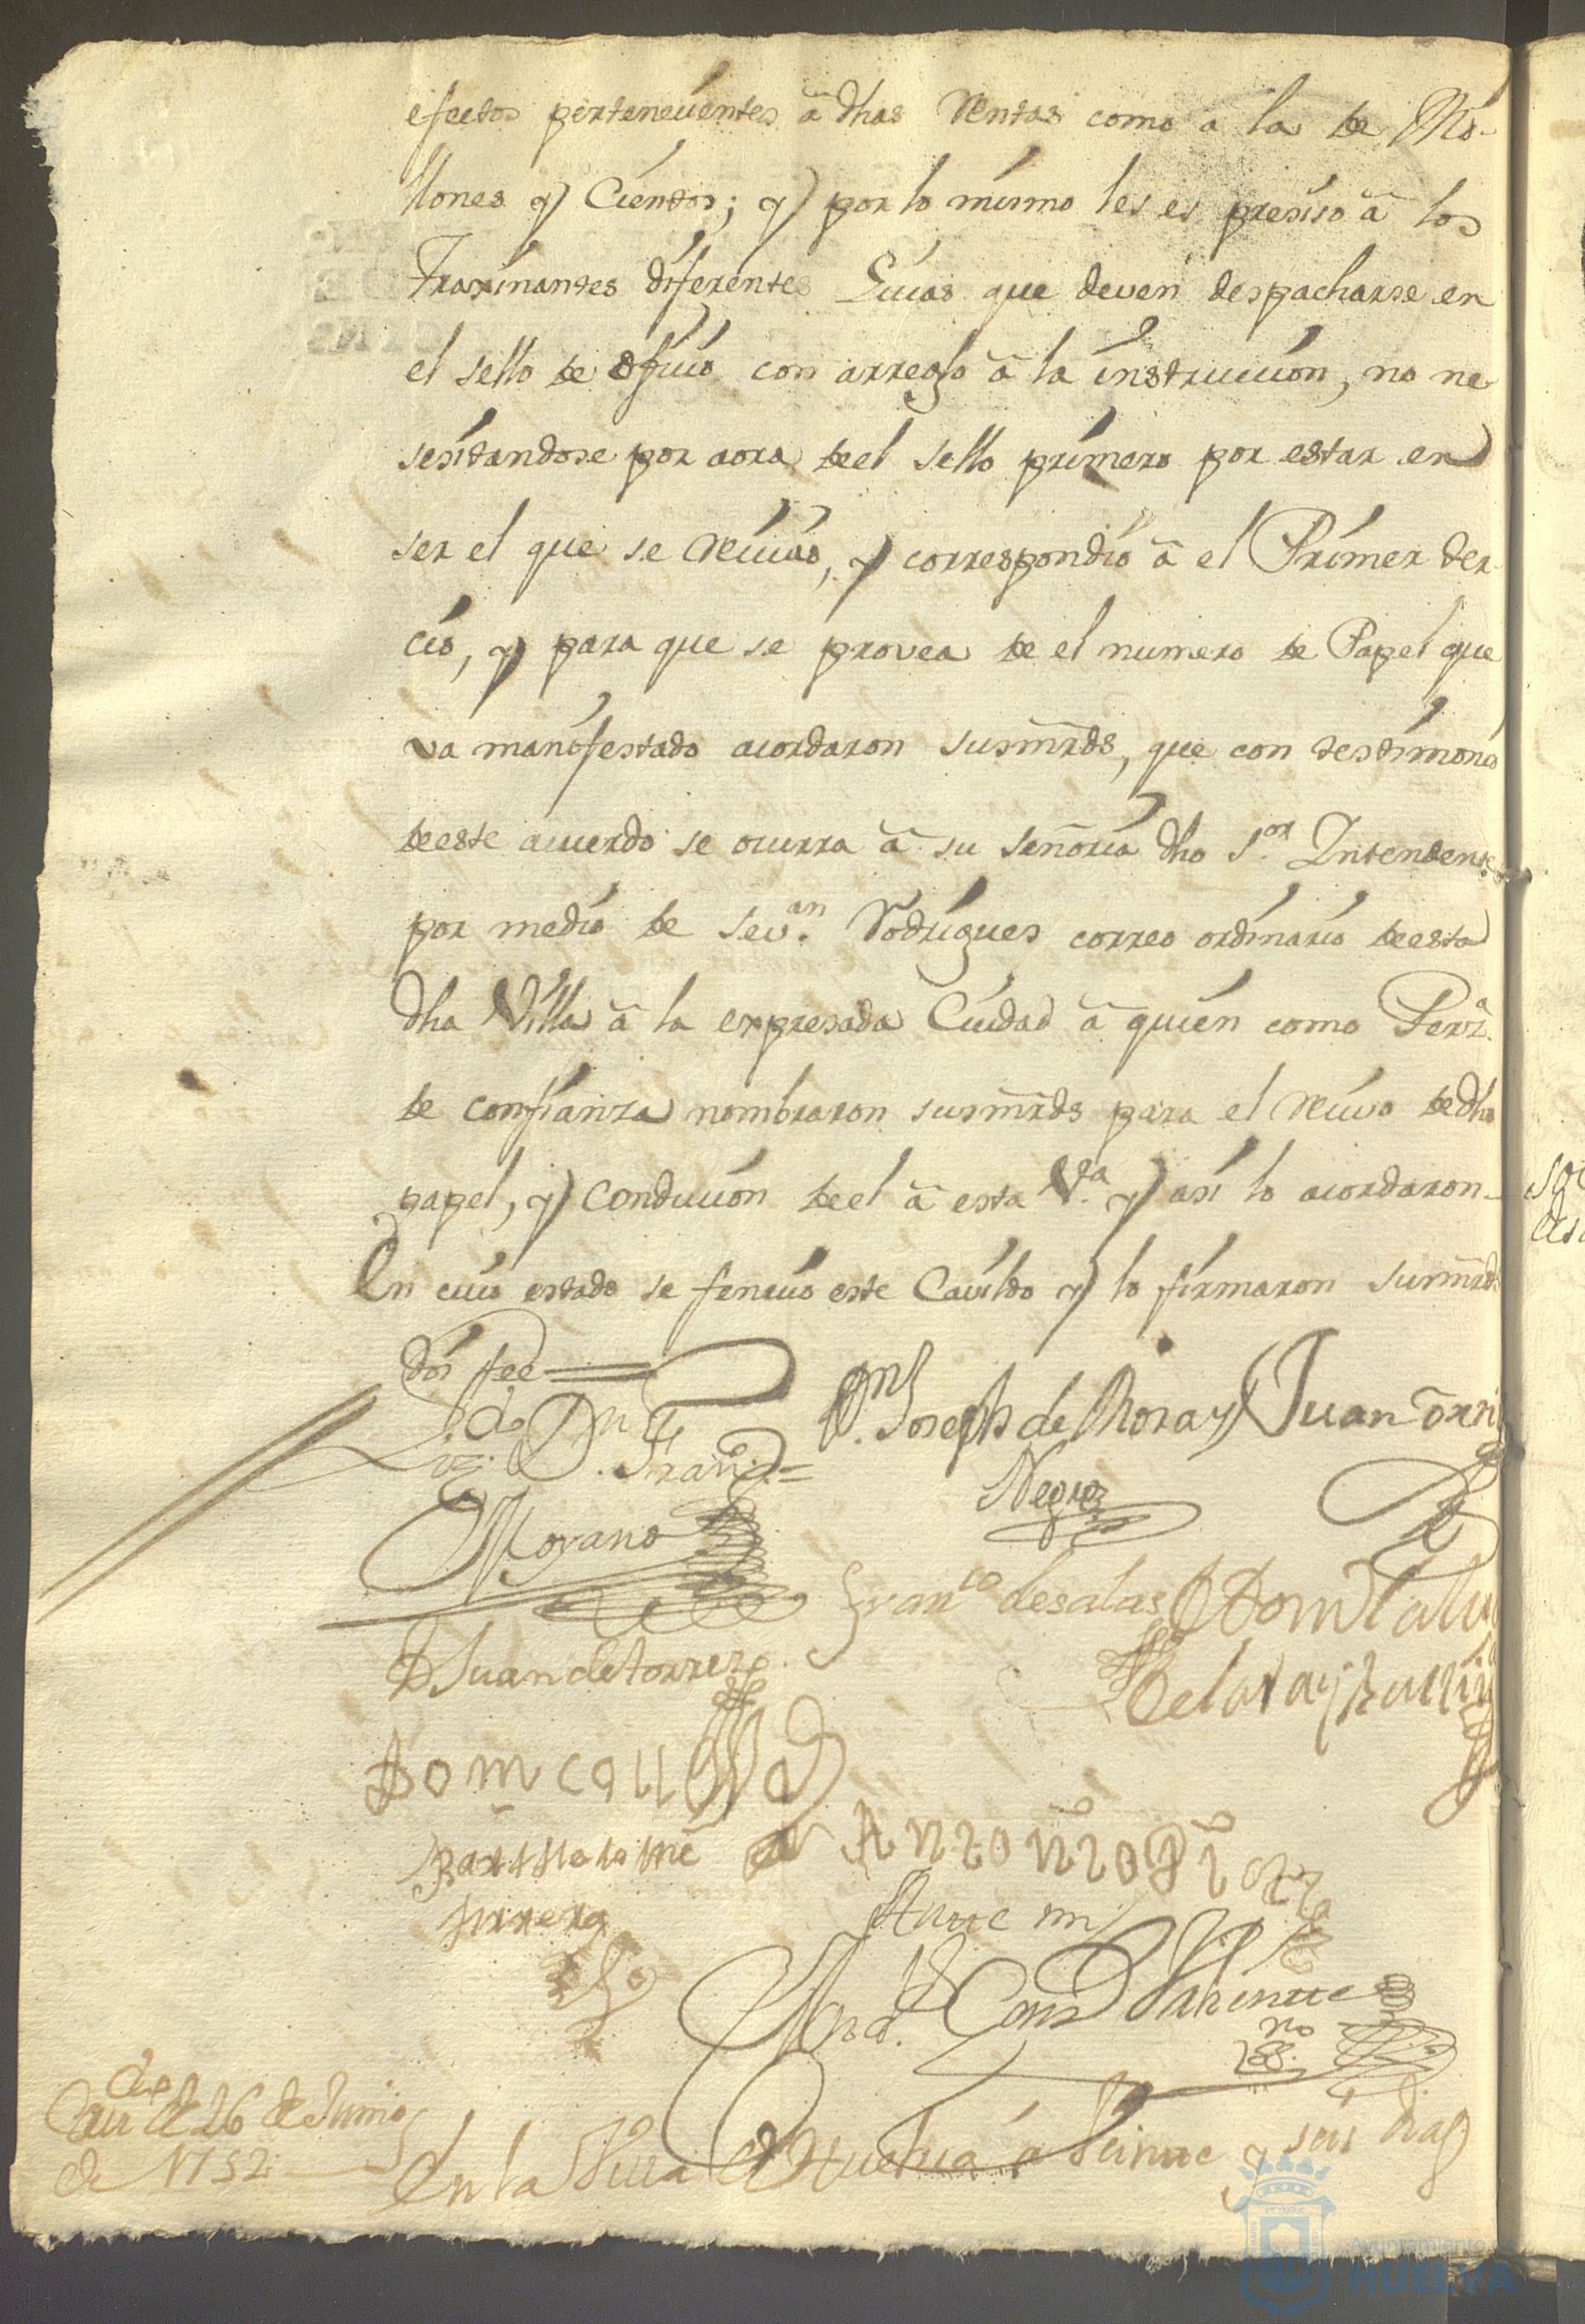 efectos pertenecientes â dhas Rentas como a la de Mi-
llones y Cientos; y por lo mismo les es presiso â los
Traxinantes diferentes Guias que deven despacharse en
el sello de oficio con arreglo â la instruccion, no ne-
sesitandose por aora de el sello primero por estar en
ser el que se recivio, y correspondio â el Primer ter-
cio, y para que se provea de el numero de Papel que
va manifestado acordaron susmrds, que con testimonio
de este acuerdo se ocurra â su señoria dho Sor. Intendente
por medio de Sevan. Rodrigues correo ordinario de esta
dha Villa â la expresada Ciudad â quien como Perza.
de confianza nombraron susmrds para el recivo de dho
papel, y conducion de el â esta Va. y asi lo acordaron-
En cuio estado se fenecio este Cavildo y lo firmaron susmrds
doi fee=
Lizdo. Dn. Franco.=
Moyano
Dn. Joseph de Mora y
Negro
Juan
Franco desalas
D Juan de torres
Bartholome
herrera
Antonio
Ante mi
Valiente
no
Cavdo de 26 de Junio
de 1752
En la Villa de Huelva a Veinte y seis dias
Ayuntamiento de
HUELVA